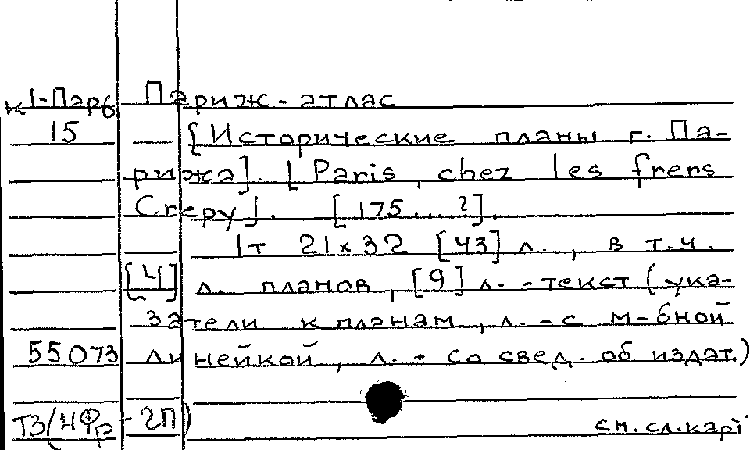 К 1-Пар6 Париж-атлас
15 — [Исторические планы г. Па-
рижа]. [Paris, chez les frers
Crepy]. [175...?].
1т 21х32 [43] л., в т.ч.
[4] л. планов, [9] л.-текст (ука-
затели к планам, л.-с м-бной
55073 линейкой, л.- со свед. об издат.)
Т3/4Фр-2П) см. сл. карт